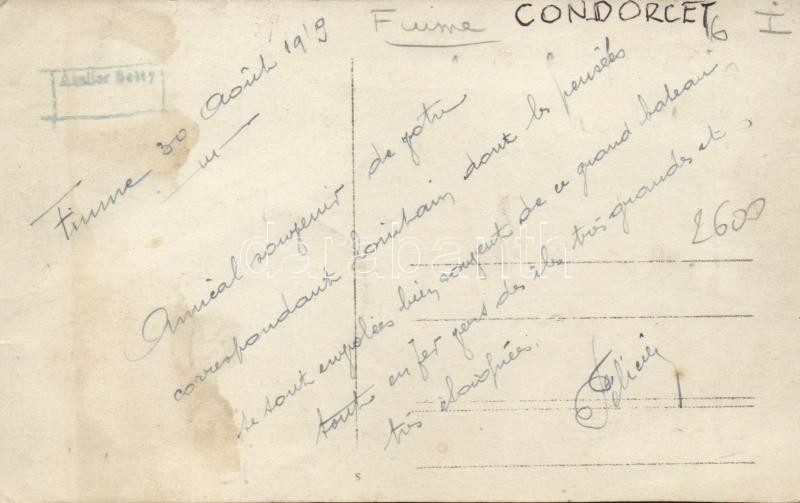 Fiume
CONDORCET
16
I
Atelier Betty
Fiume 30 Août 1919
Amical souvenir de votre
correspondant lointain dont les pensées
se sont envolées bien souvent de ce grand bateau
tout en fer vers des îles très grandes et
très éloignées.
Félicien
2600
darabanth
s